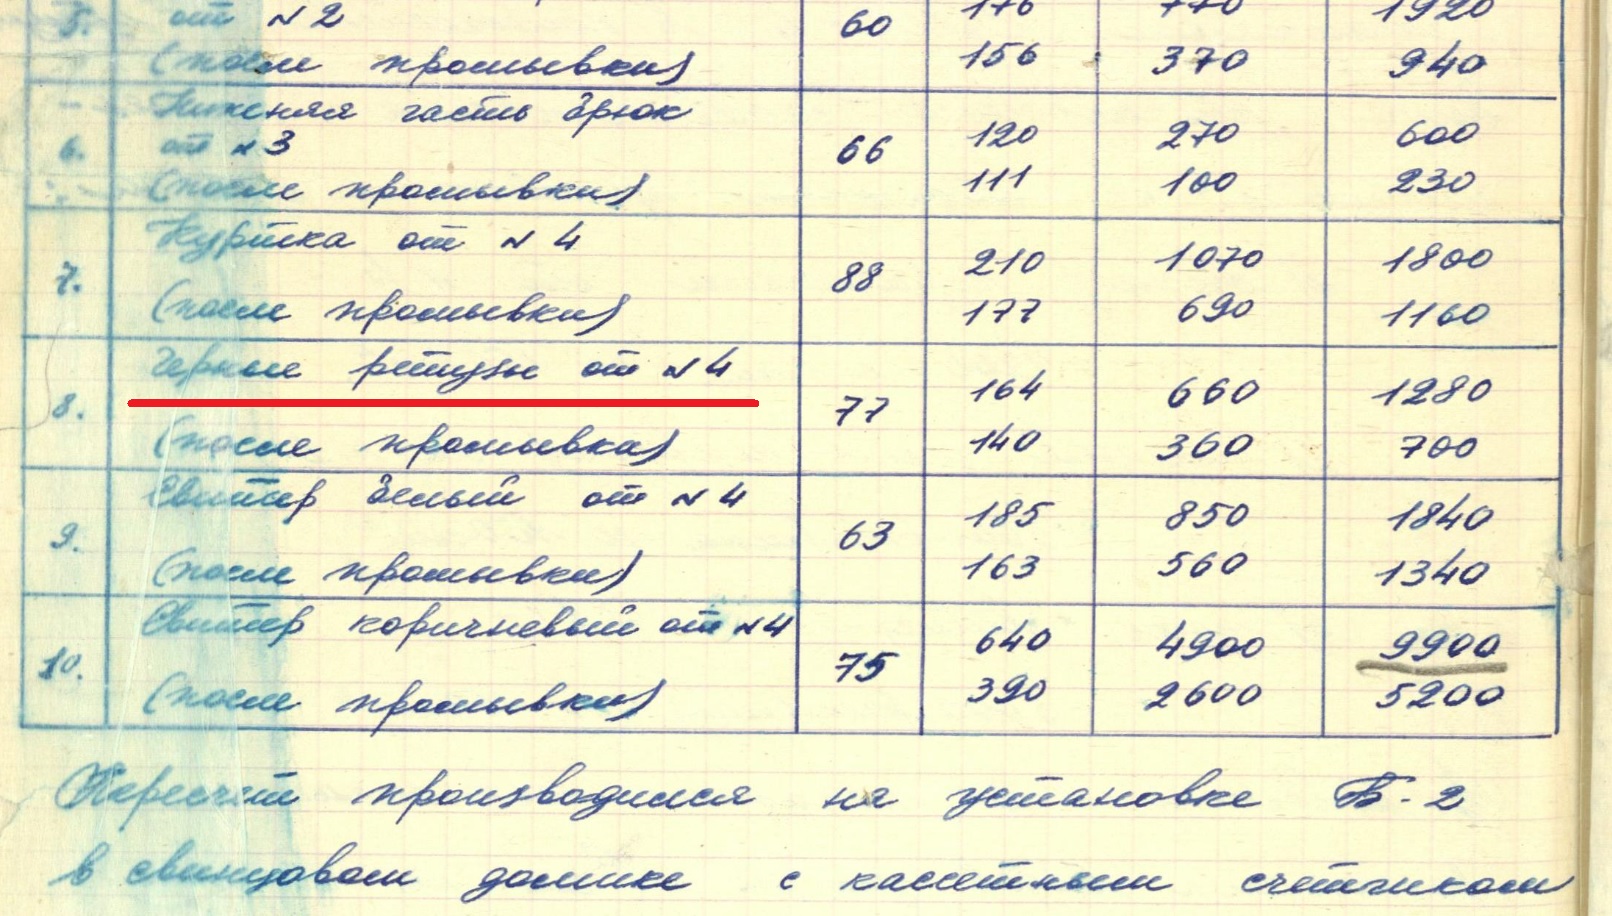 5. от №2 60 176 770 1920
(после промывки) 156 370 940
Нижняя часть брюк 120 270 600
6. от №3 66
(после промывки) 111 100 230
Куртка от №4 210 1070 1800
7. 88
(после промывки) 177 690 1160
Черные рейтузы от №4 164 660 1280
8. 77
(после промывки) 140 360 700
Свитер белый от №4 185 850 1840
9. 63
(после промывки) 163 560 1340
Свитер коричневый от №4 640 4900 9900
10. 75
(после промывки) 390 2600 5200
Пересчет производился на установке Б-2
в свинцовом домике с кассетным счетчиком